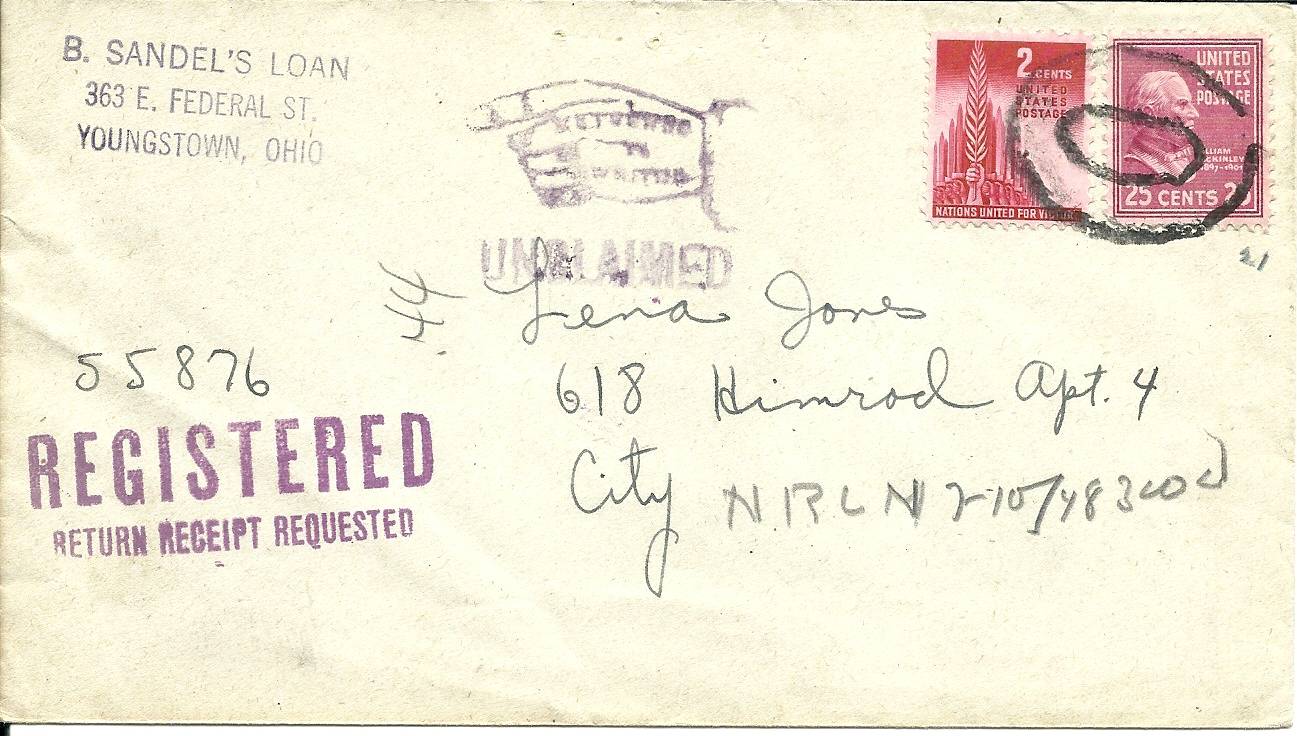 B. SANDEL'S LOAN
363 E. FEDERAL ST.
YOUNGSTOWN, OHIO
RETURNED
TO
WRITER
UNCLAIMED
2 CENTS
UNITED
STATES
POSTAGE
NATIONS UNITED FOR VICTORY
UNITED
STATES
POSTAGE
WILLIAM
MCKINLEY
1897-1901
25 CENTS 25
21
44
Lena Jones
618 Himrod Apt. 4
City
55876
REGISTERED
RETURN RECEIPT REQUESTED